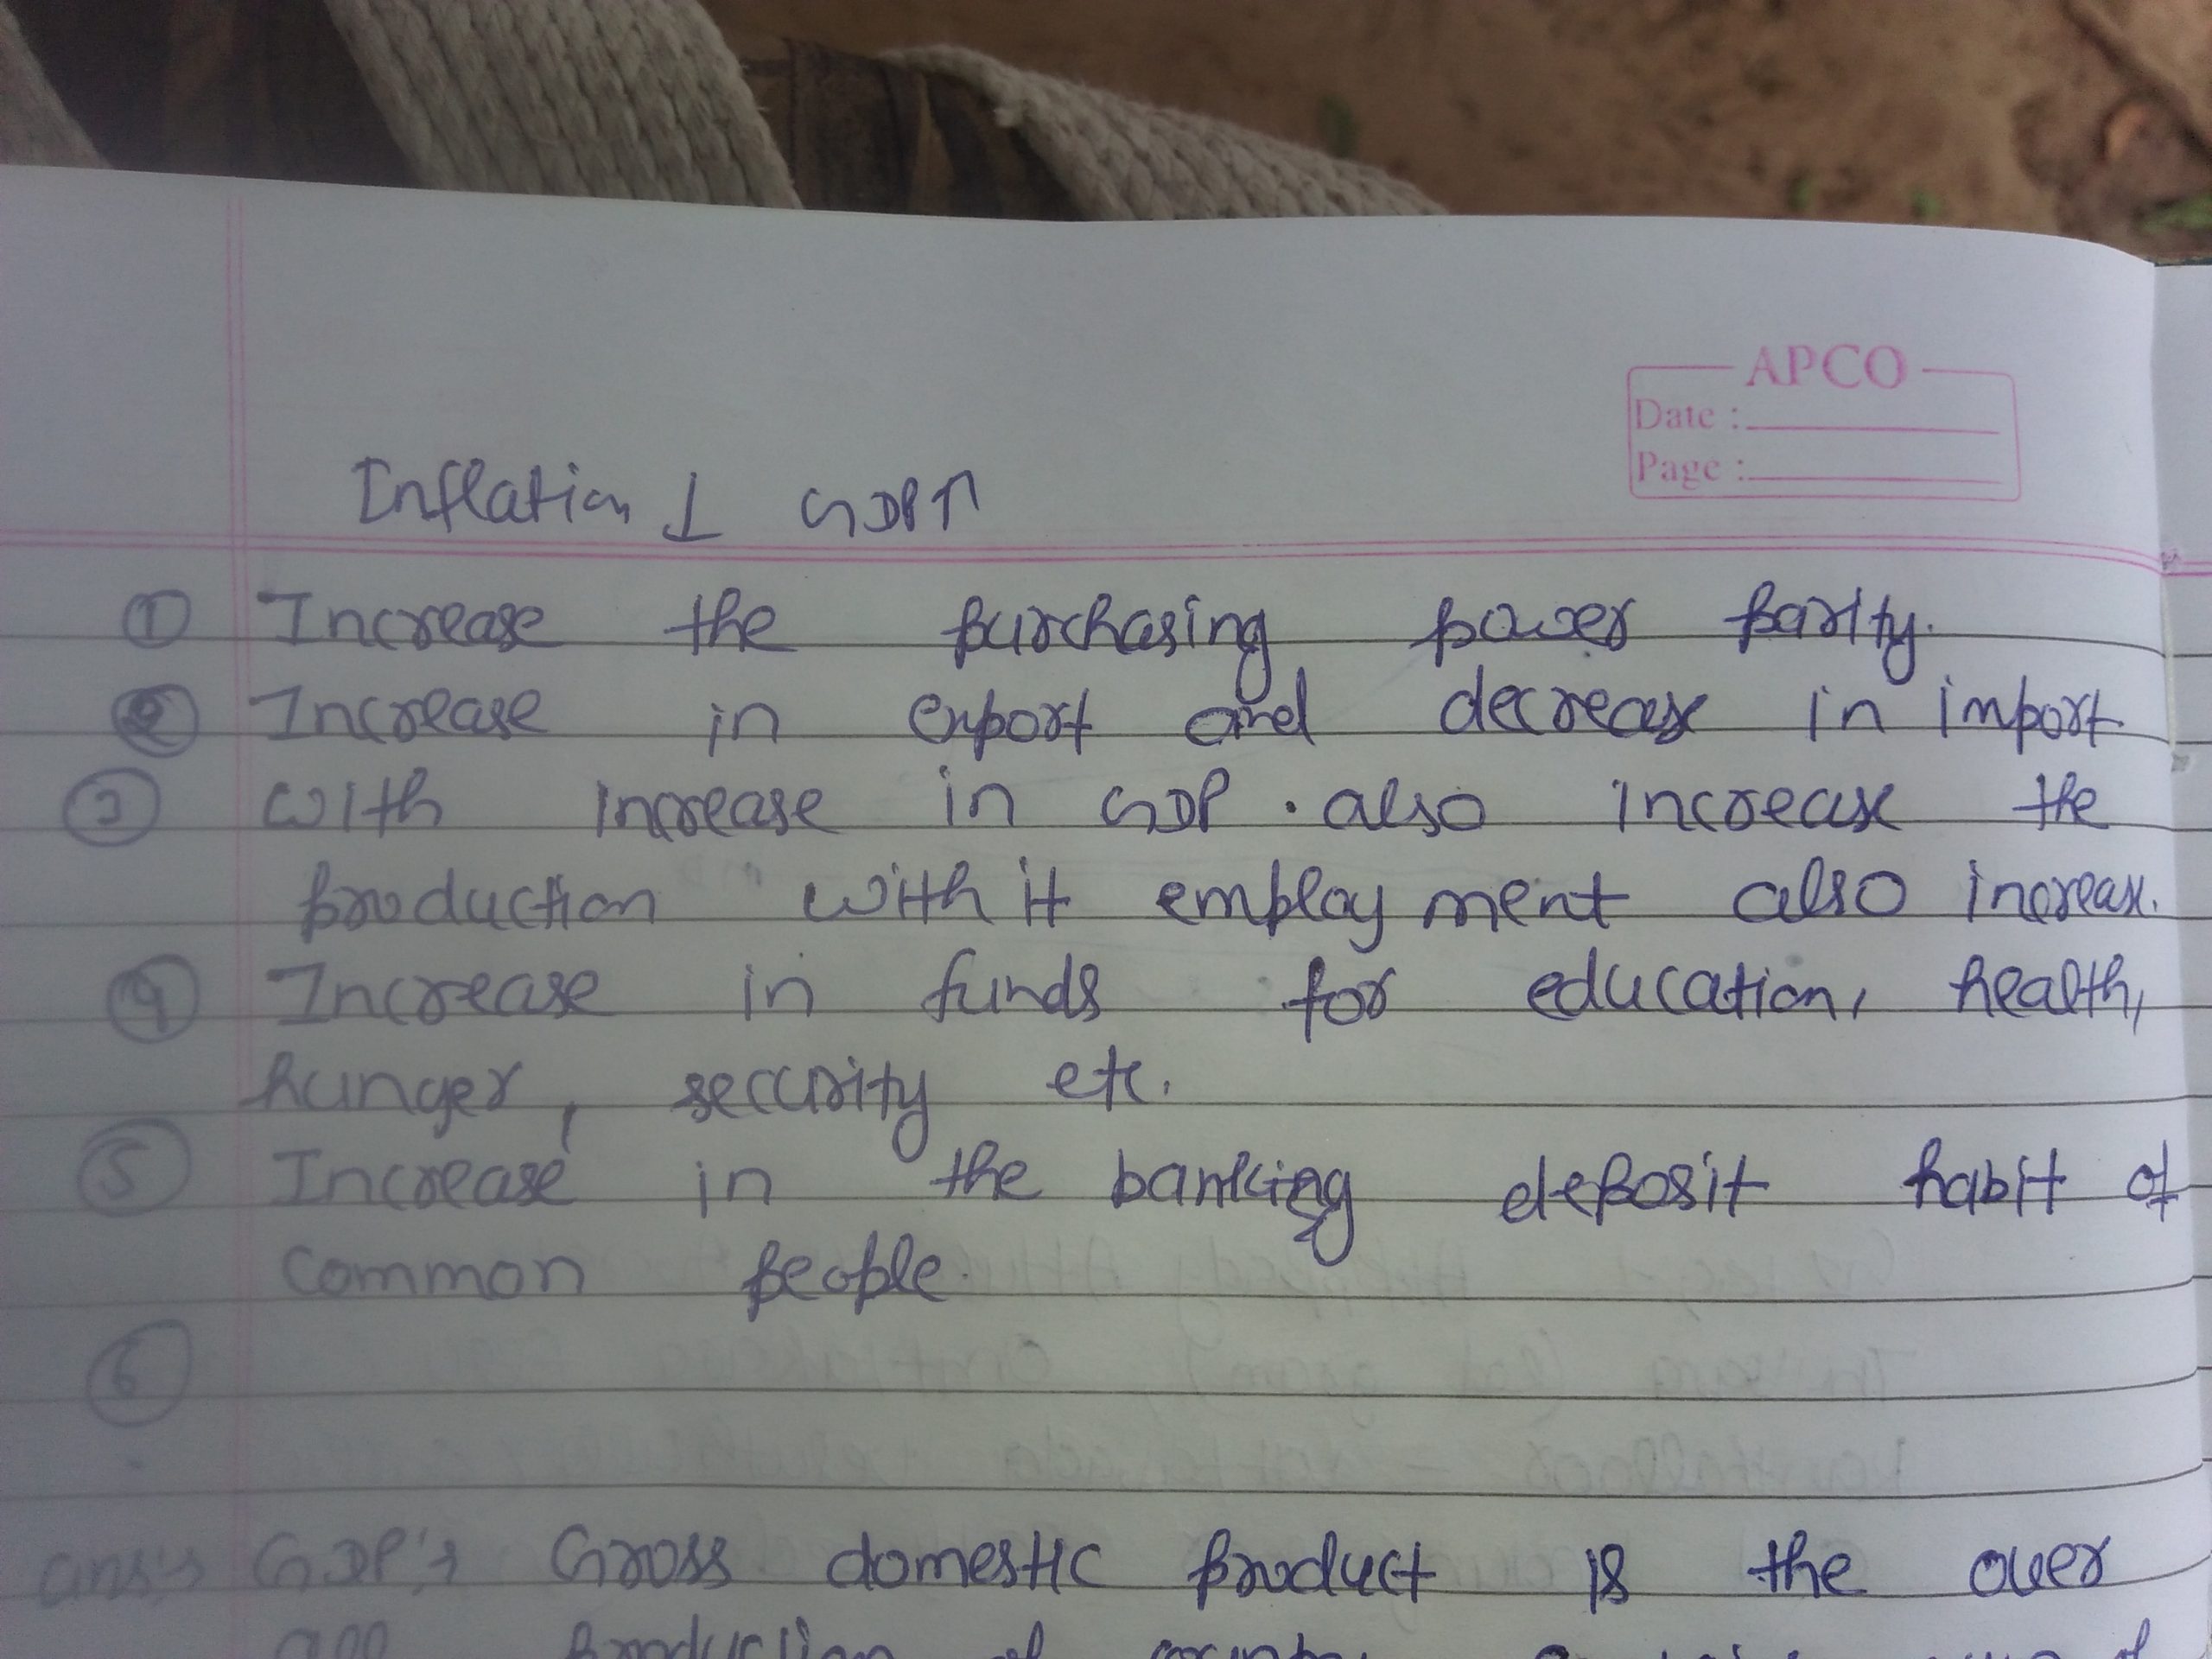 APCO
Date :
Page :
Inflation ↓ GDP↑
① Increase the purchasing power parity.
② Increase in export and decrease in import.
③ with increase in GDP . also increase the
production with it employment also increase.
④ Increase in funds for education, health,
hunger, security etc.
⑤ Increase in the banking deposit habit of
common people.
⑥
ans:> GDP:> Gross domestic product is the over
all production of country